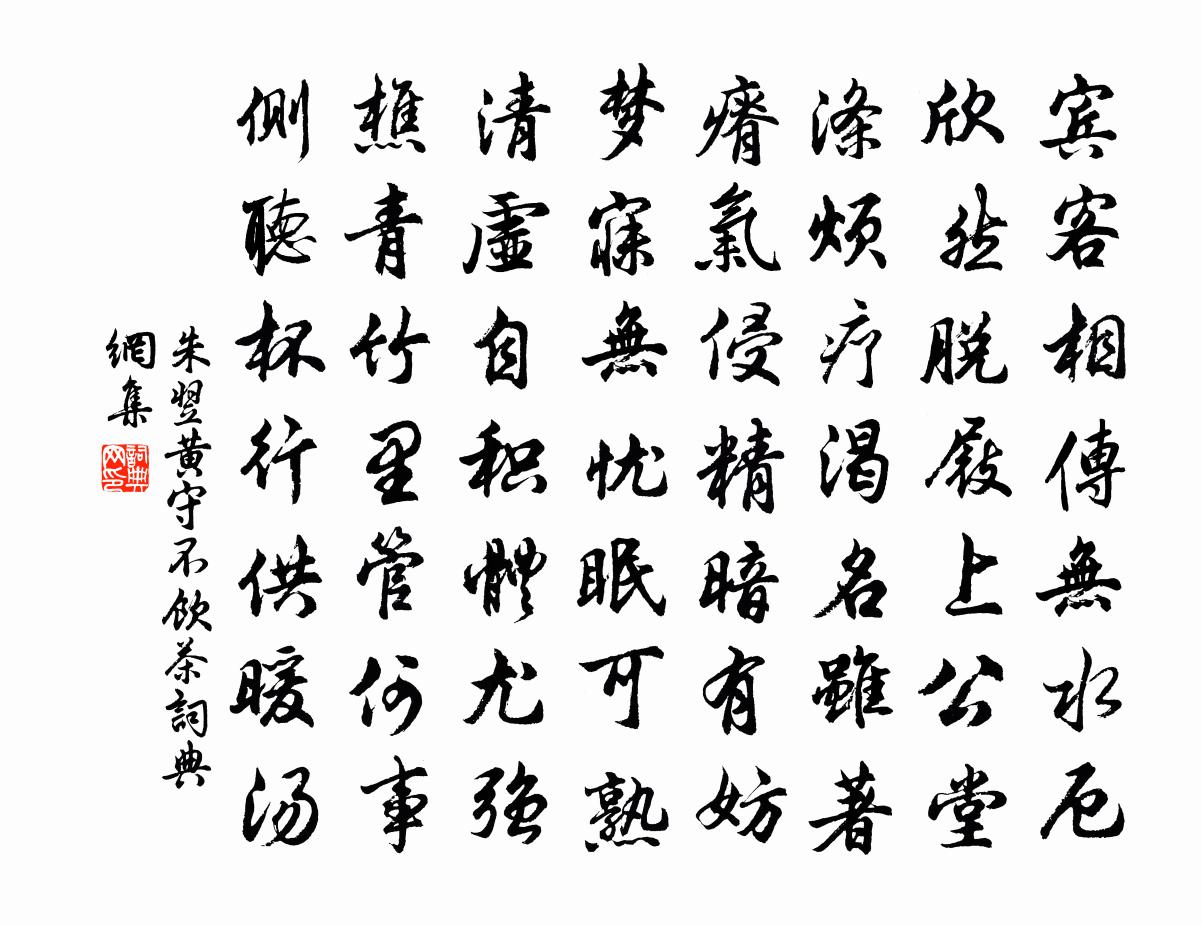 宾客相傳無水厄
欣然脱屐上公堂
涤烦疗渴名雖著
瘠氣侵精暗有妨
梦寐無忧眠可熟
清虛自积體尤强
樵青竹里管何事
侧聽杯行供暖汤
朱翌黄守不飲茶詞典
網集
詞典
网印